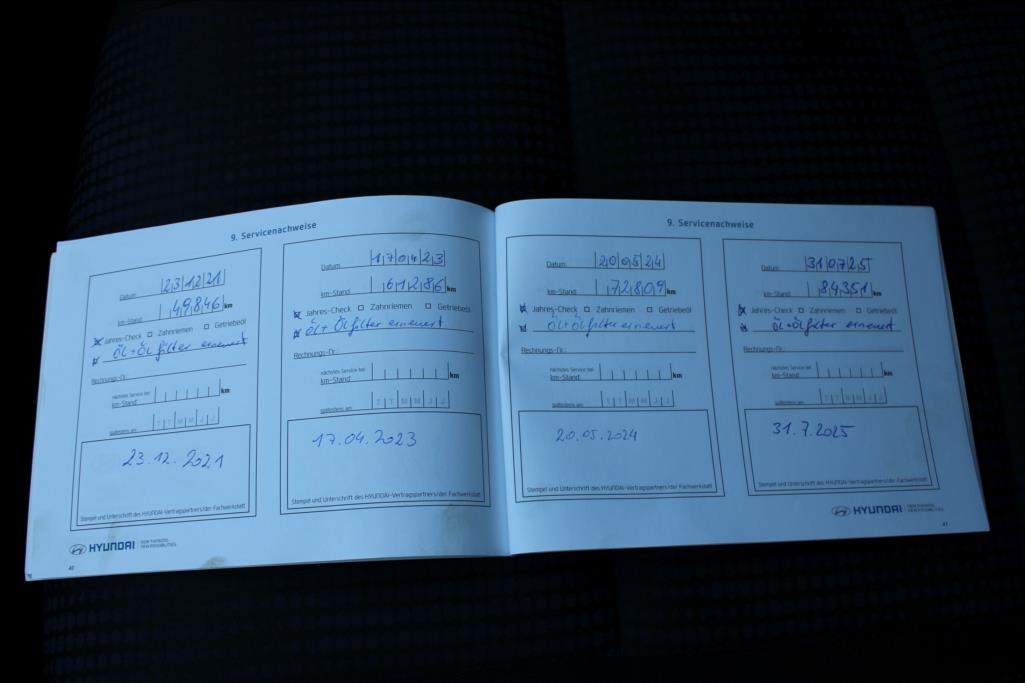 9. Servicenachweise
Datum: 23 12 21
km-Stand: 49846 km
Jahres-Check Zahnriemen Getriebeöl
Öl + Öl filter erneuert
Rechnungs-Nr.:
nächstes Service bei
km-Stand: km
spätestens am: T T M M J J
23.12.2021
Stempel und Unterschrift des HYUNDAI-Vertragspartners/der Fachwerkstatt
Datum: 17 04 23
km-Stand: 61286 km
Jahres-Check Zahnriemen Getriebeöl
Öl + Öl filter erneuert
Rechnungs-Nr.:
nächstes Service bei
km-Stand: km
spätestens am: T T M M J J
17.04.2023
Stempel und Unterschrift des HYUNDAI-Vertragspartners/der Fachwerkstatt
HYUNDAI NEW THINKING.
NEW POSSIBILITIES.
40
9. Servicenachweise
Datum: 20 05 24
km-Stand: 72809 km
Jahres-Check Zahnriemen Getriebeöl
Öl + Öl filter erneuert
Rechnungs-Nr.:
nächstes Service bei
km-Stand: km
spätestens am: T T M M J J
20.05.2024
Stempel und Unterschrift des HYUNDAI-Vertragspartners/der Fachwerkstatt
Datum: 31 07 25
km-Stand: 84351 km
Jahres-Check Zahnriemen Getriebeöl
Öl + Öl filter erneuert
Rechnungs-Nr.:
nächstes Service bei
km-Stand: km
spätestens am: T T M M J J
31.7.2025
Stempel und Unterschrift des HYUNDAI-Vertragspartners/der Fachwerkstatt
HYUNDAI NEW THINKING.
NEW POSSIBILITIES.
41